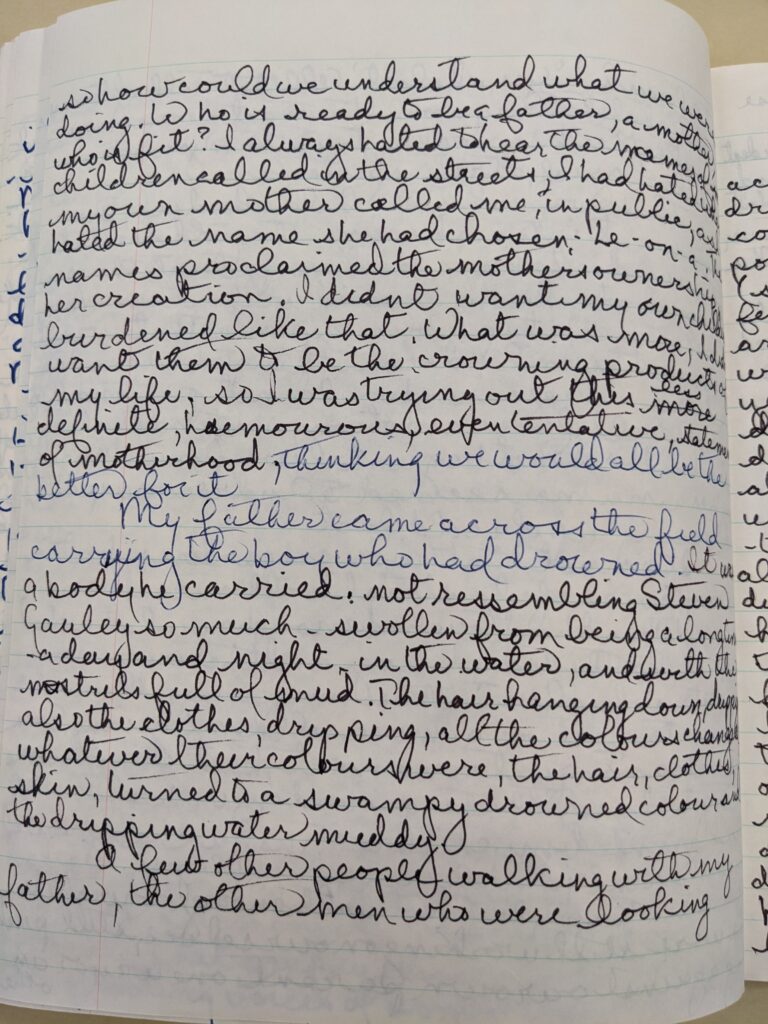 so how could we understand what we were
doing. Who is ready to be a father, a mother,
who is fit? I always hated to hear the names of
children called in the streets, I had hated
my own mother called me, in public,
hated the name she had chosen. Le-on-a.
names proclaimed the mothers ownership
her creation. I didnt want my own
burdened like that. What was more, I
want them to be the crowning products
my life, so I was trying out this less more
definite, humourous, even tentative,
of motherhood, thinking we would all be the
better for it
My father came across the field
carrying the boy who had drowned. It
a body he carried. not ressembling Steven
Gauley so much - swollen from being a long
- a day and night - in the water, and with the
nostrils full of mud. The hair hanging down,
also the clothes, dripping, all the colours
whatever their colours were, the hair, clothes,
skin, turned to a swampy drowned colour
the dripping water muddy.
A few other people walking with my
father, the other men who were looking